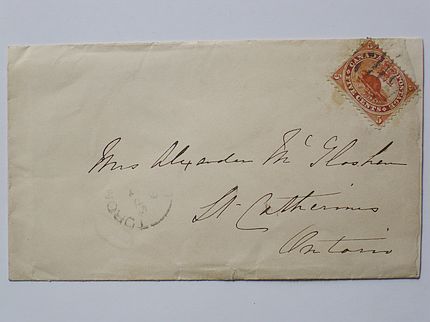 CANADA POSTAGE
FIVE CENTS
5
5
Mrs Alexander Mc Glashan
St Catherines
Ontario